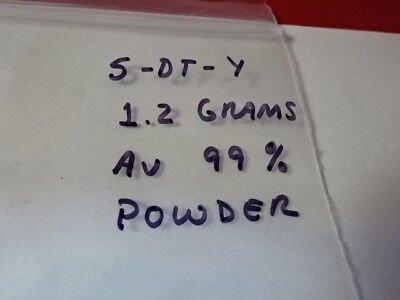 5-DT-Y
1.2 GRAMS
Au 99%
POWDER